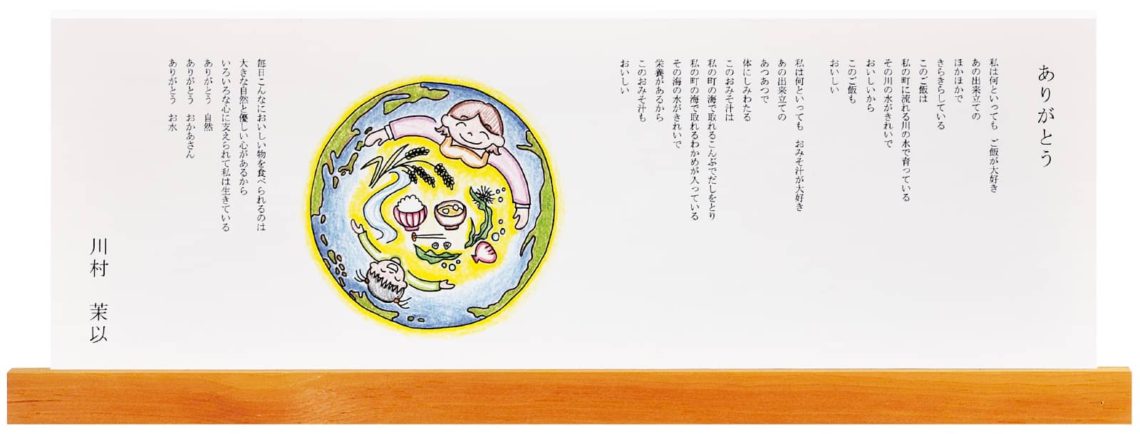 ありがとう
私は何といっても ご飯が大好き
あの出来立ての
ほかほかで
きらきらしている
このご飯は
私の町に流れる川の水で育っている
その川の水がきれいで
おいしいから
このご飯も
おいしい
私は何といっても おみそ汁が大好き
あの出来立ての
あつあつで
体にしみわたる
このおみそ汁は
私の町の海で取れるこんぶでだしをとり
私の町の海で取れるわかめが入っている
その海の水がきれいで
栄養があるから
このおみそ汁も
おいしい
毎日こんなにおいしい物を食べられるのは
大きな自然と優しい心があるから
いろいろな心に支えられて私は生きている
ありがとう 自然
ありがとう おかあさん
ありがとう お水
川村 茉以